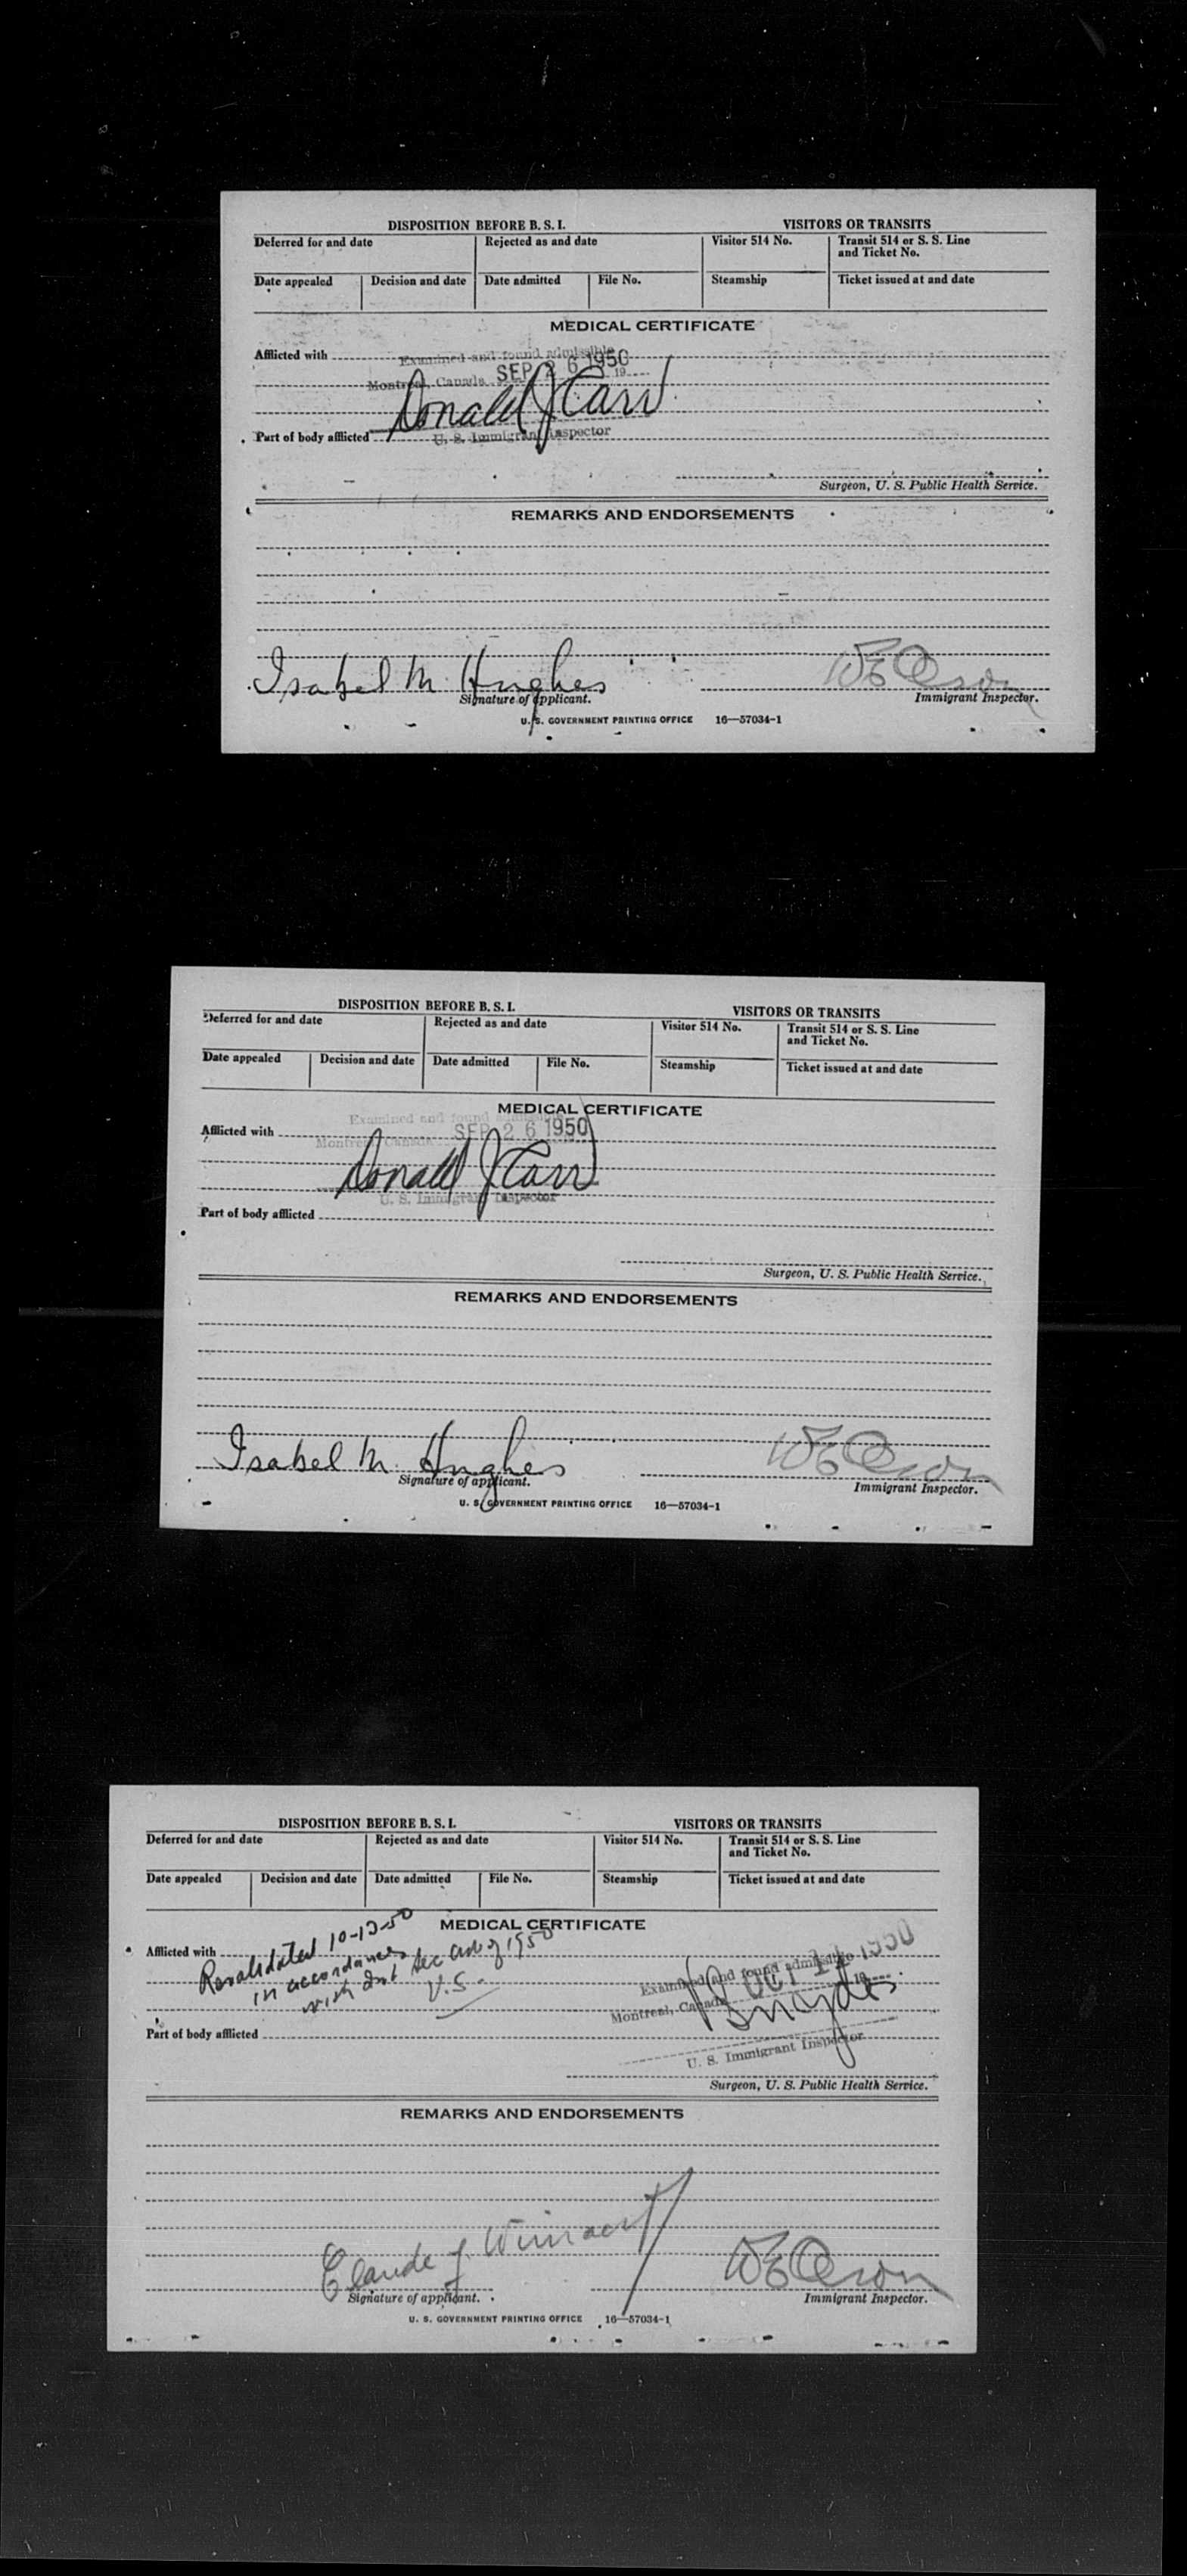 DISPOSITION BEFORE B. S. I.
VISITORS OR TRANSITS
Deferred for and date
Rejected as and date
Visitor 514 No.
Transit 514 or S. S. Line
and Ticket No.
Date appealed
Decision and date
Date admitted
File No.
Steamship
Ticket issued at and date
MEDICAL CERTIFICATE
Afflicted with
Examined and found admissible
Montreal, Canada SEP 26 1950 19
Donald J Carr
Part of body afflicted
U. S. Immigrant Inspector
Surgeon, U. S. Public Health Service.
REMARKS AND ENDORSEMENTS
Isabel M. Hughes
Signature of applicant.
Immigrant Inspector.
U. S. GOVERNMENT PRINTING OFFICE 16—57034-1
DISPOSITION BEFORE B. S. I.
VISITORS OR TRANSITS
Deferred for and date
Rejected as and date
Visitor 514 No.
Transit 514 or S. S. Line
and Ticket No.
Date appealed
Decision and date
Date admitted
File No.
Steamship
Ticket issued at and date
MEDICAL CERTIFICATE
Examined and found admissible
Afflicted with
Montreal, Canada SEP 26 1950
Donald J Carr
U. S. Immigrant Inspector
Part of body afflicted
Surgeon, U. S. Public Health Service.
REMARKS AND ENDORSEMENTS
Isabel M. Hughes
Signature of applicant.
Immigrant Inspector.
U. S. GOVERNMENT PRINTING OFFICE 16—57034-1
DISPOSITION BEFORE B. S. I.
VISITORS OR TRANSITS
Deferred for and date
Rejected as and date
Visitor 514 No.
Transit 514 or S. S. Line
and Ticket No.
Date appealed
Decision and date
Date admitted
File No.
Steamship
Ticket issued at and date
MEDICAL CERTIFICATE
Afflicted with
Revalidated 10-13-50
in accordance
with Int Sec Act of 1950
V.S.
Examined and found admissible
OCT 1950
Montreal, Canada 19
Snyder
U. S. Immigrant Inspector
Part of body afflicted
Surgeon, U. S. Public Health Service.
REMARKS AND ENDORSEMENTS
Claude J.
Signature of applicant.
Immigrant Inspector.
U. S. GOVERNMENT PRINTING OFFICE 16—57034-1